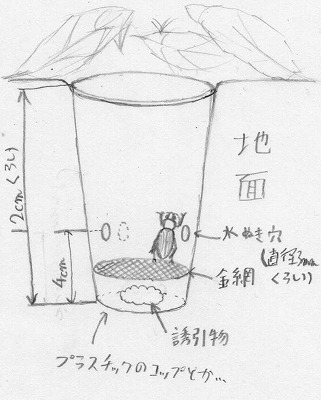 地
面
12cmくらい
4cm
水ぬき穴
(直径3mm
くらい)
金網
誘引物
プラスチックのコップとか…